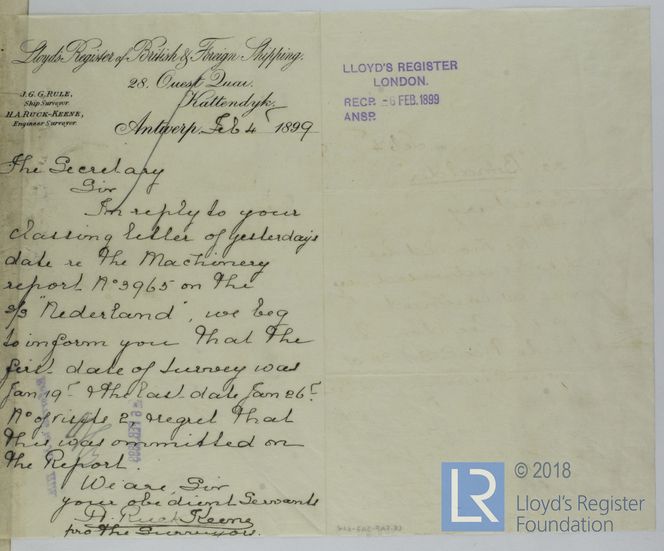 Lloyd's Register of British & Foreign Shipping.
28. Ouest Quai.
Kattendyk,
J.G.G. RULE,
Ship Surveyor
H.A. RUCK-KEENE,
Engineer Surveyor
Antwerp, Feb 4 1899
LLOYD'S REGISTER
LONDON.
RECP. -6 FEB. 1899
ANSP.
The Secretary
Sir
In reply to your
classing letter of yesterdays
date re the Machinery
report No 3965 on the
s/s "Nederland", we beg
to inform you that the
first date of survey was
Jan 19t & the last date Jan 26t
No of visits 2, & regret that
this was ommitted on
the Report.
We are Sir
your obedient Servants
H. Ruck Keene
pro the Surveyors.
LR
© 2018
Lloyd's Register
Foundation